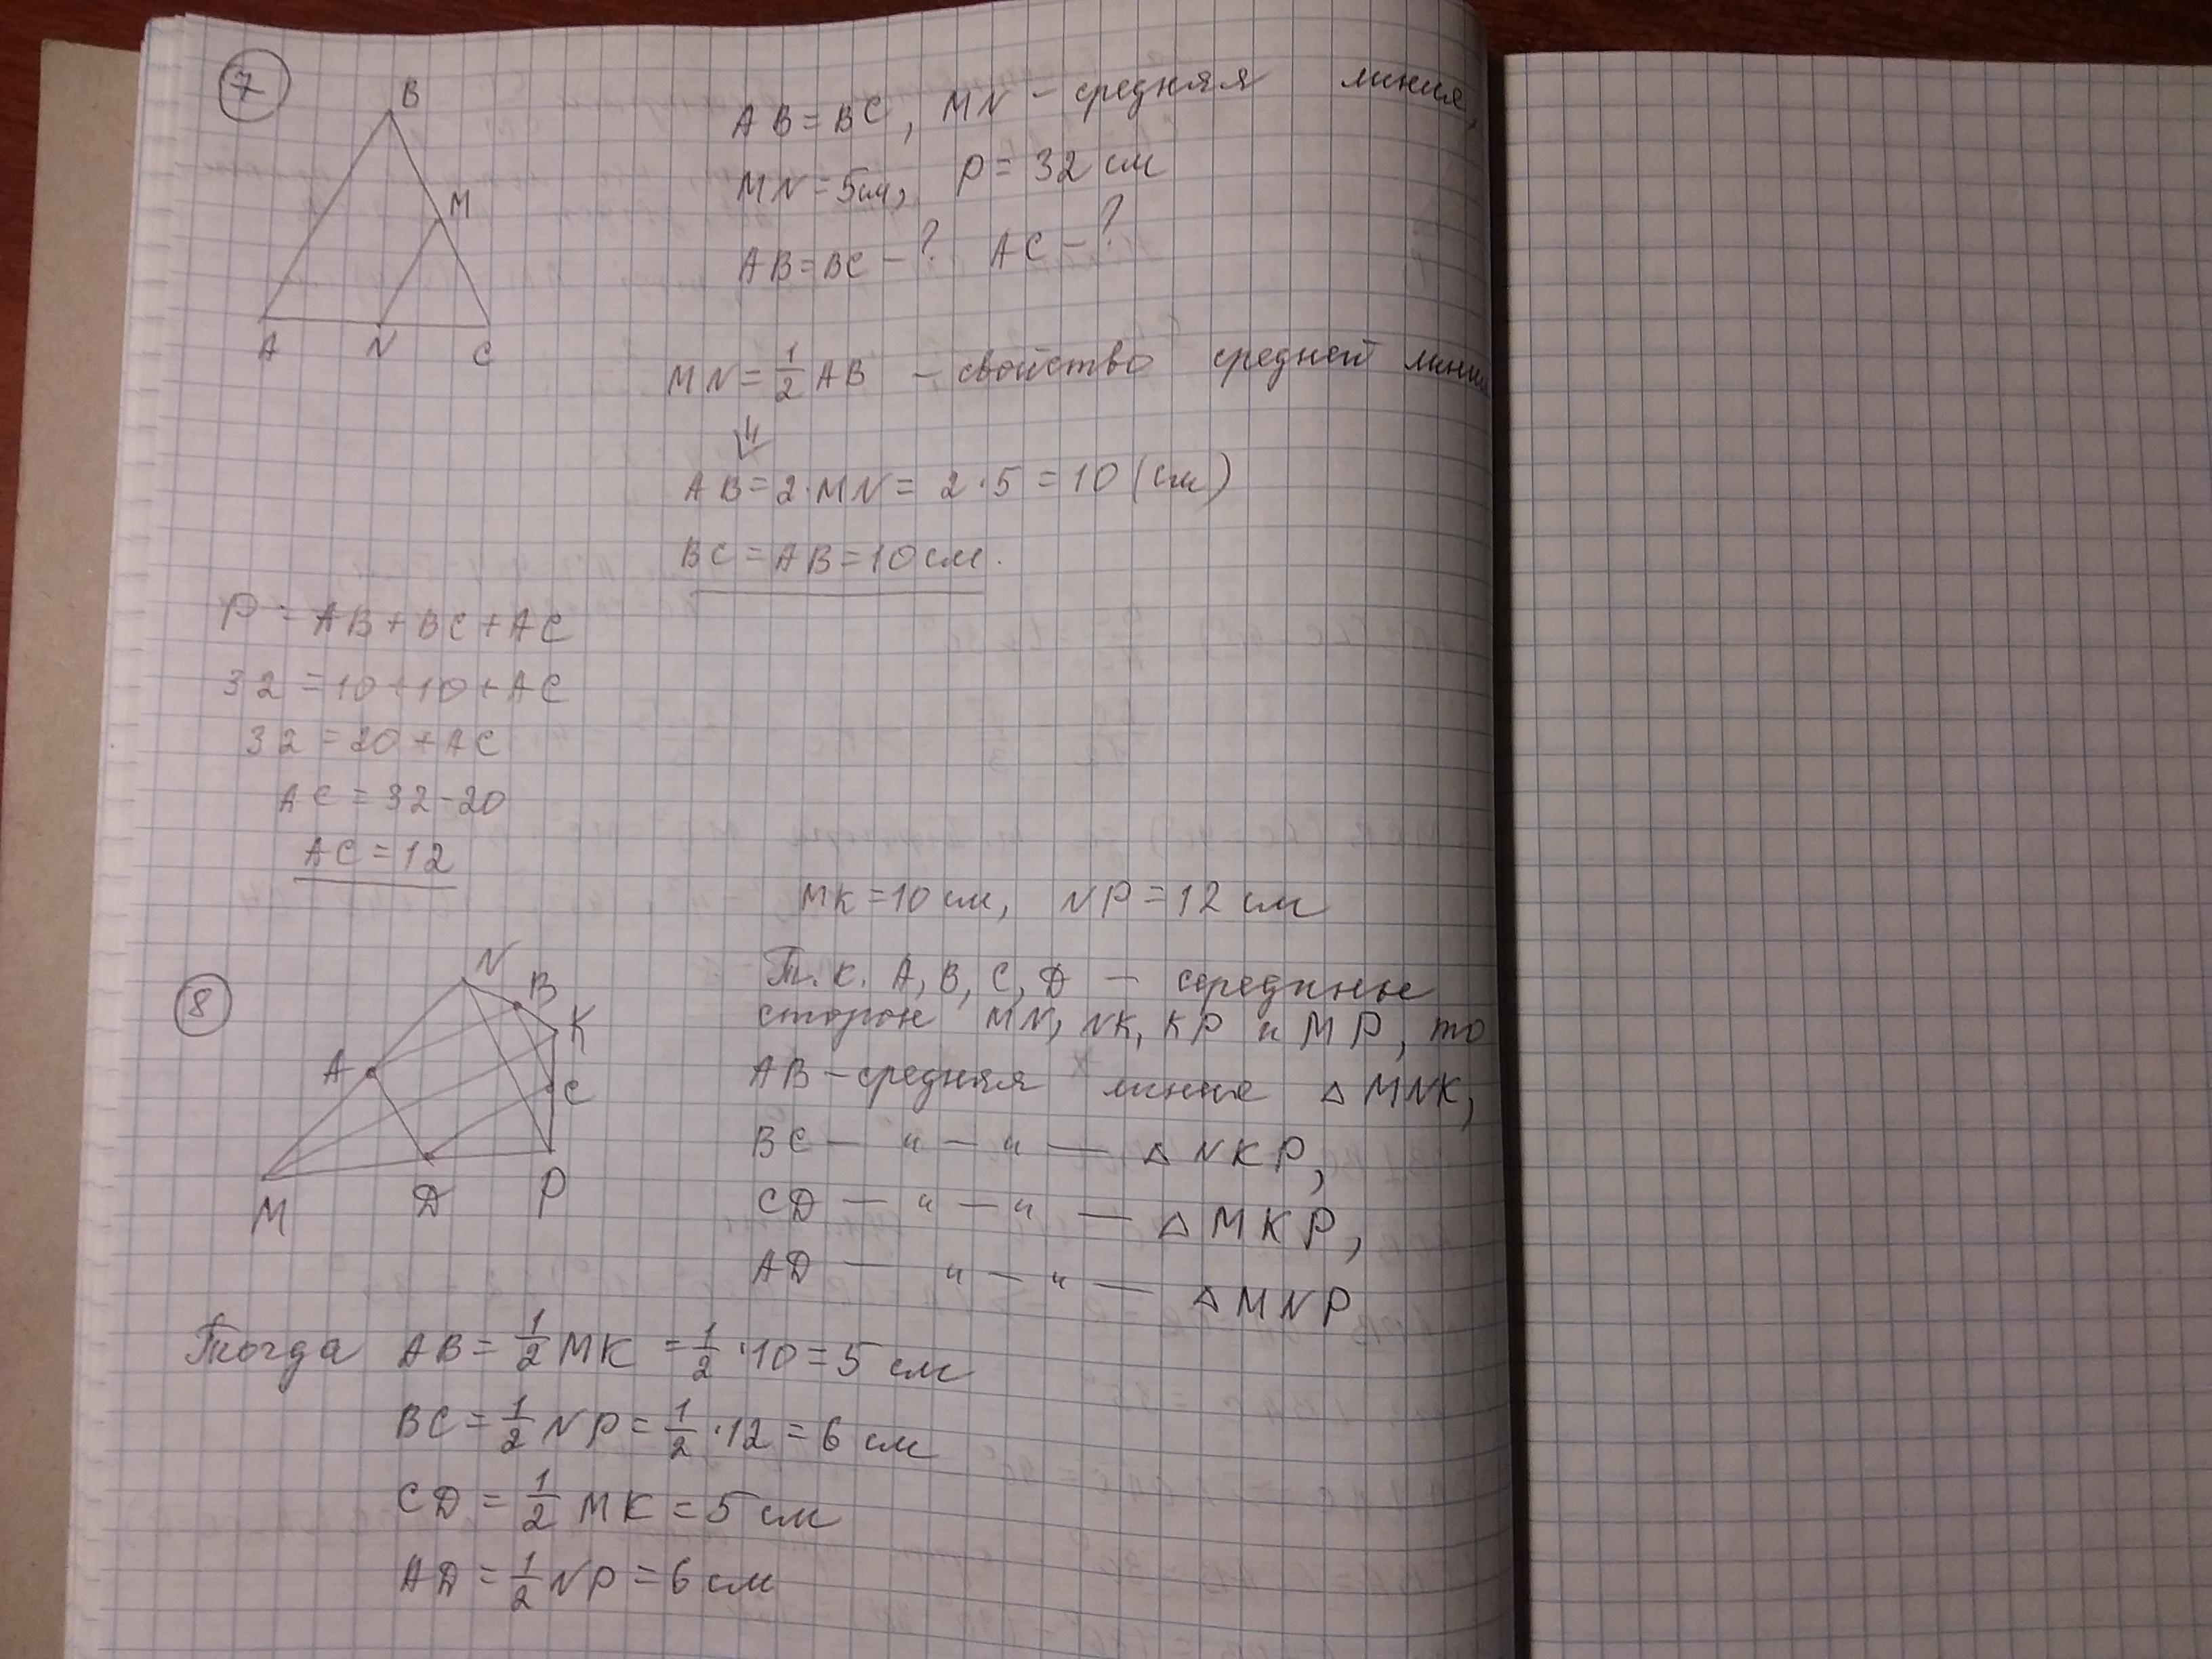 7
B
M
A N C
AB = BC, MN – средняя линия,
MN = 5 см, P = 32 см
AB = BC – ? AC – ?
MN = 1/2 AB – свойство средней линии
⇓
AB = 2·MN = 2·5 = 10 (см)
BC = AB = 10 см.
P = AB + BC + AC
32 = 10 + 10 + AC
32 = 20 + AC
AC = 32 - 20
AC = 12
MK = 10 см, NP = 12 см
8
N
B
K
A
C
M D P
Т.к. A, B, C, D – середины
сторон MN, NK, KP и MP, то
AB – средняя линия △ MNK,
BC — " — " — △ NKP,
CD — " — " — △ MKP,
AD — " — " — △ MNP
Тогда AB = 1/2 MK = 1/2 · 10 = 5 см
BC = 1/2 NP = 1/2 · 12 = 6 см
CD = 1/2 MK = 5 см
AD = 1/2 NP = 6 см